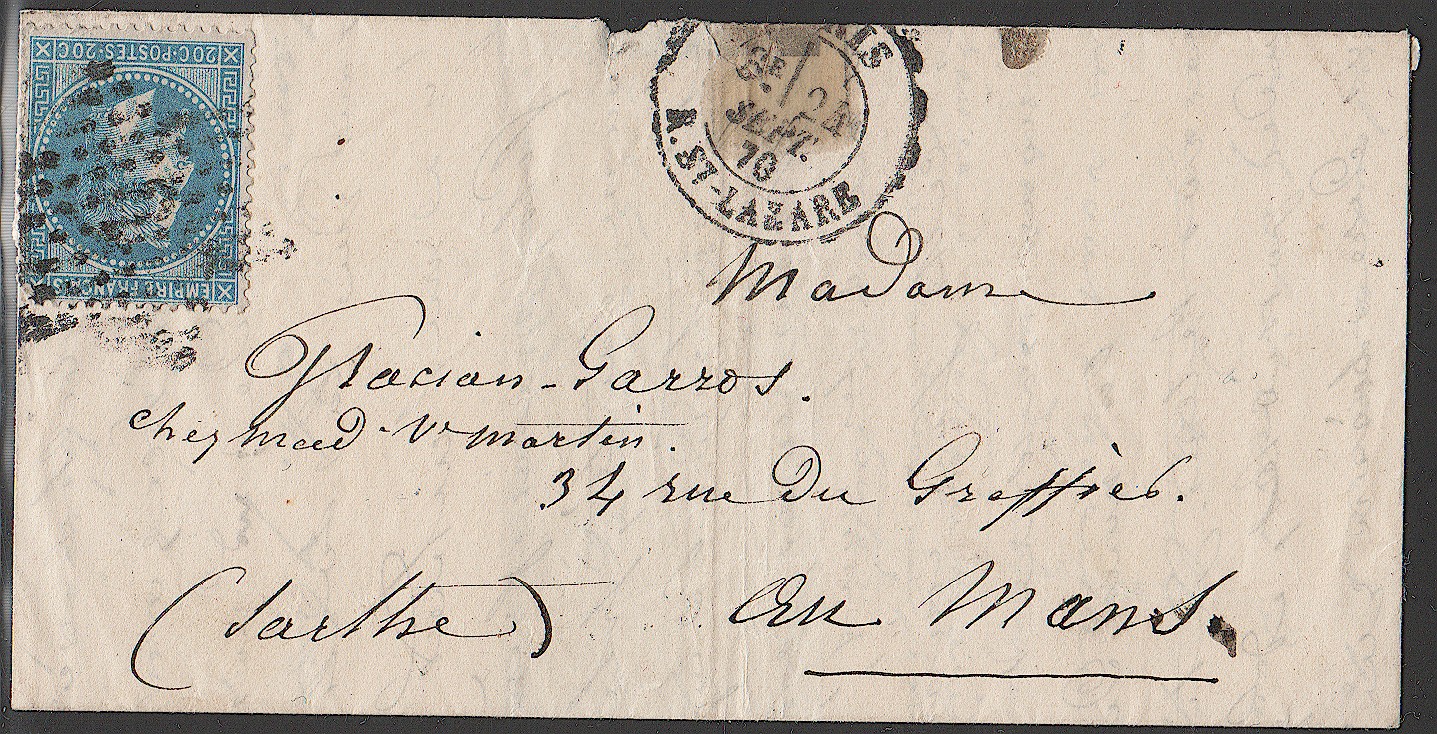 20C·POSTES·20C
EMPIRE FRANÇAIS
PARIS
6E
24
SEPT.
70
R. ST-LAZARE
Madame
Glacian-Garros.
chez mad. Ve martin.
34 rue du Greffier.
au Mans.
(Sarthe)